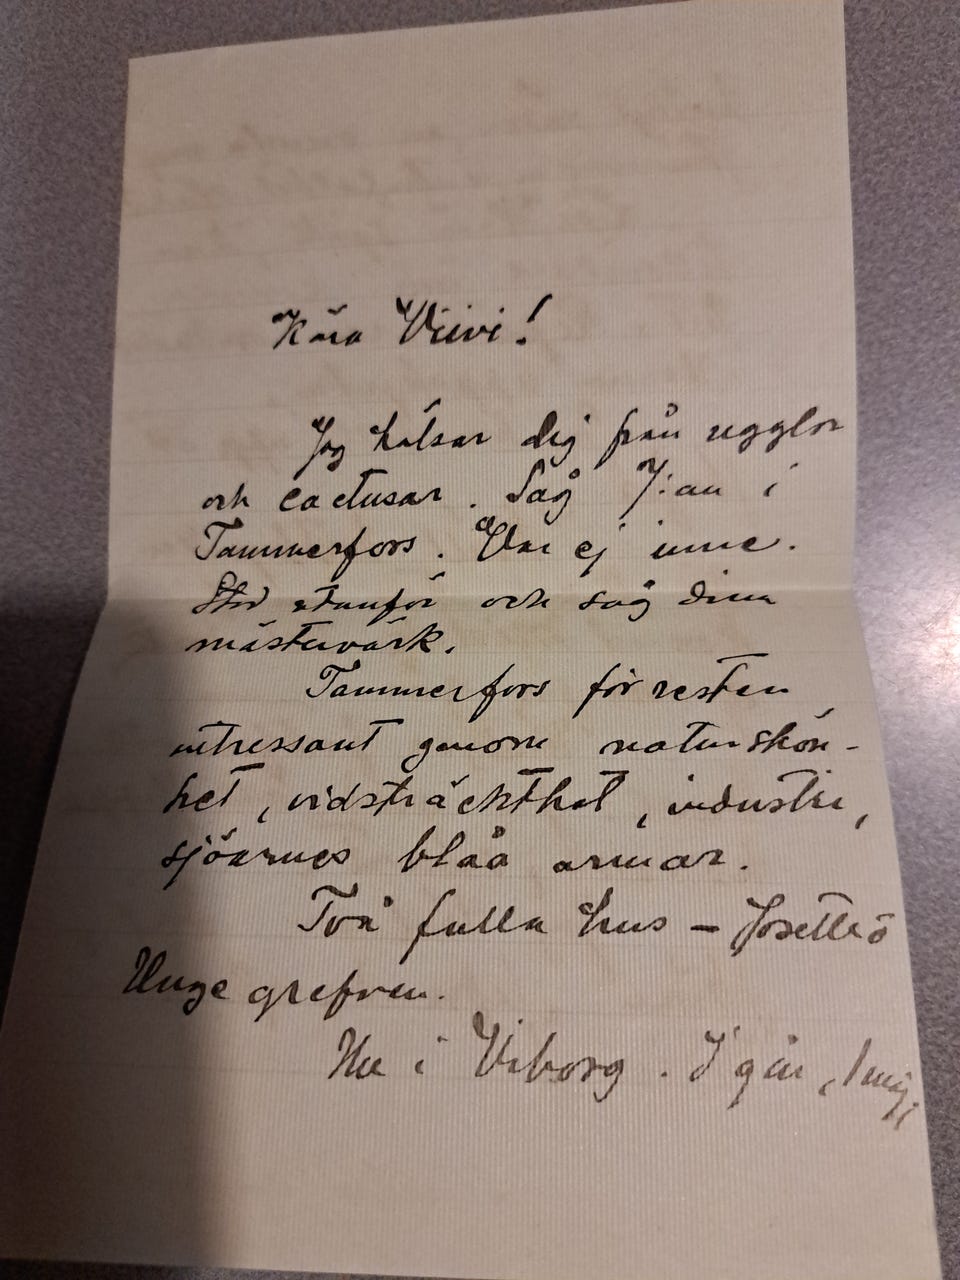 Kära Viivi!
Jag hälsar dig från ugglor
och cactusar. Såg J:an i
Tammerfors. Var ej inne.
Stod utanför och såg dina
mästervärk.
Tammerfors för resten
intressant genom naturskön-
het, vidsträckthet, industri,
sjöarnes blåa armar.
Två fulla hus – Josette o
Unge grefven.
Nu i Viborg. I går